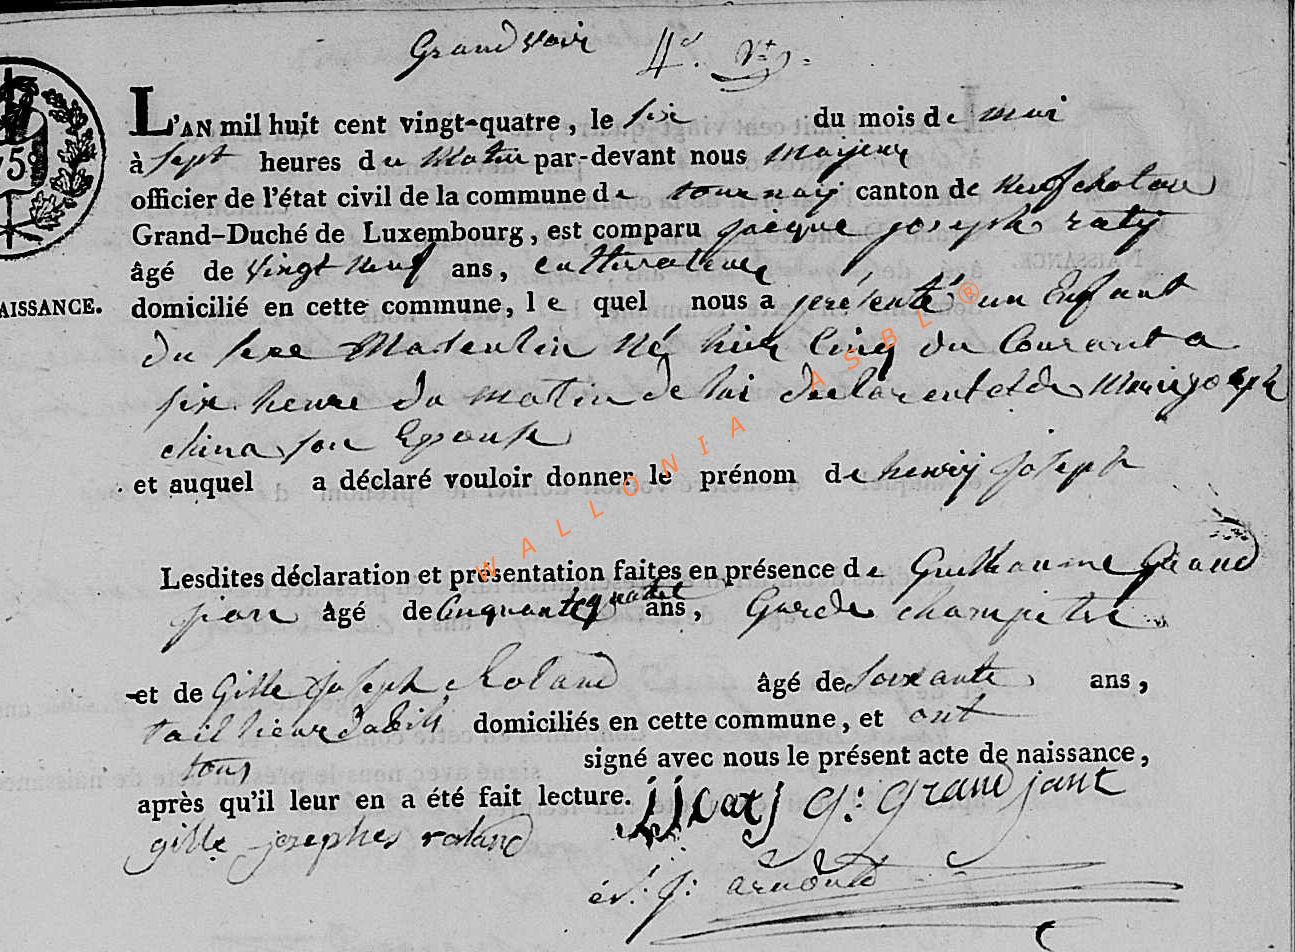 Grandvoir 4e. Vt.
75
L'AN mil huit cent vingt-quatre, le six du mois de mai
à sept heures du Matin par-devant nous mayeur
officier de l'état civil de la commune de tournay canton de neufchateau
Grand-Duché de Luxembourg, est comparu jacque joseph raty
âgé de vingt neuf ans, cultivateur
AISSANCE.
domicilié en cette commune, le quel nous a présenté un Enfant
du sexe Masculin Né hier Cinq du Courant a
six heure du matin de lui declarent et de Marie joseph
china son Epouse
et auquel a déclaré vouloir donner le prénom de henry joseph
Lesdites déclaration et présentation faites en présence de Guilliaume Grand
jean âgé de Cinquante quatre ans, Garde champetre
et de Gille joseph Roland âgé de soixante ans,
taillieur dabill domiciliés en cette commune, et ont
tous signé avec nous le présent acte de naissance,
après qu'il leur en a été fait lecture. g: grand jant
gille josephes roland
j: arnould
WALLONIA ASBL ®